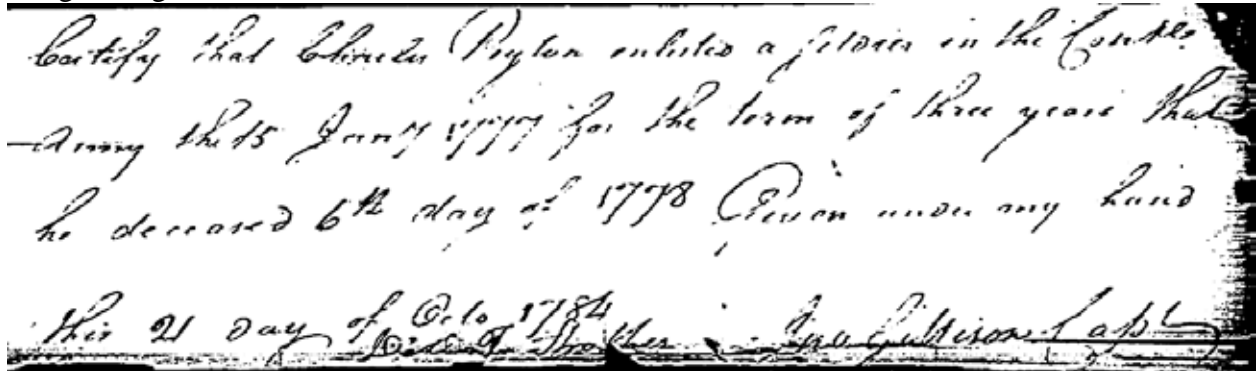 Certify that Charles Peyton enlisted a soldier in the Contl
Army the 15 Jany 1777 for the term of three years that
he deceased 6th day of 1778 Given under my hand
this 21 day of Octo 1784
Strother Jno Gillison Capt